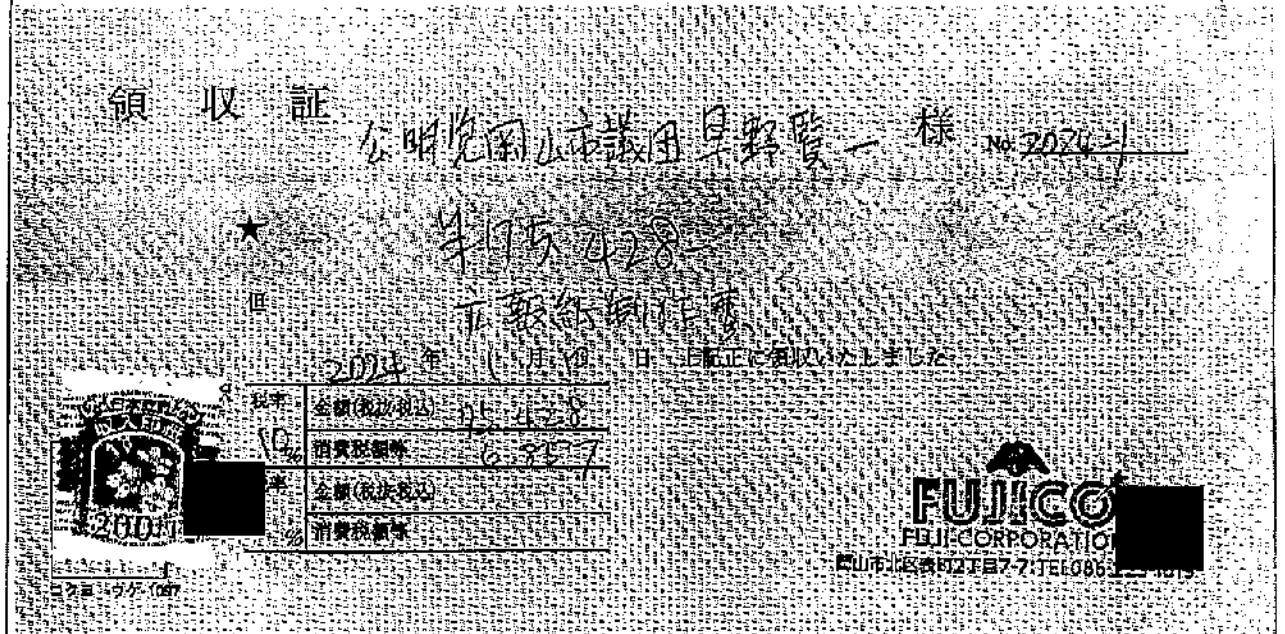 領収証
公明党岡山市議団 早野賢一 様
No. 2024-1
★
¥175428-
但 広報紙制作費
2024年 1月 19日 上記正に領収いたしました
税率 10% 金額(税抜・税込)
消費税額等
金額(税抜・税込)
% 消費税額等
日本政府
収入印紙
200円
コクヨ ウケ-1097
FUJICO
FUJI-CORPORATIO
岡山市北区表町2丁目7-7:TEL086